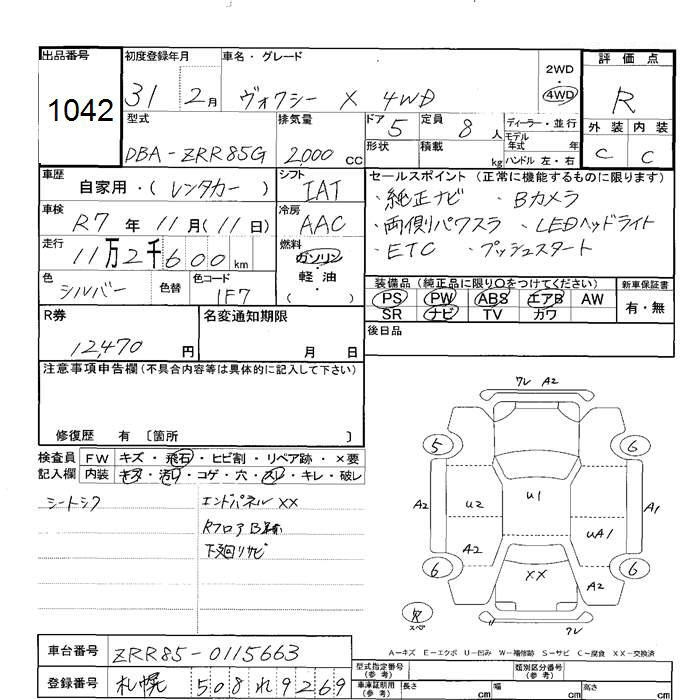 出品番号 初度登録年月 車名・グレード 2WD・4WD 評価点
1042 31 2月 ヴォクシー X 4WD R
型式 排気量 ドア 5 定員 8人 ディーラー・並行 外装 内装
DBA-ZRR85G 2,000cc 形状 積載 kg モデル年式 年 ハンドル 左・右 C C
車歴 シフト セールスポイント(正常に機能するものに限ります)
自家用・(レンタカー) IAT ・純正ナビ ・Bカメラ
車検 冷房 ・両側パワスラ ・LEDヘッドライト
R7年11月(11日) AAC ・ETC ・プッシュスタート
走行 燃料
11万2千600km ガソリン・軽油・( )
色 色替 色コード 装備品(純正品に限り○をつけてください) 新車保証書
シルバー 1F7 PS PW ABS エアB AW 有・無
R券 名変通知期限 SR ナビ TV カワ
12,470円 月 日 後日品
注意事項申告欄(不具合内容等は具体的に記入して下さい)
修復歴 有 〔箇所 〕
検査員記入欄 FW キズ・飛石・ヒビ割・リペア跡・×要
内装 キズ・汚れ・コゲ・穴・スレ・キレ・破レ
シートシワ エンドパネルXX
下廻りサビ
フレ A2
5 6
A2 U2 U1 A1
A2 UA1
6 XX A2 6
スペア フレ
A-キズ E-エクボ U-凹み W-補修跡 S-サビ C-腐食 XX-交換済
車台番号 ZRR85-0115663 型式指定番号(参考) 類別区分番号(参考)
登録番号 札幌 508れ9269 車庫証明用(参考) 長さ cm 幅 cm 高さ cm